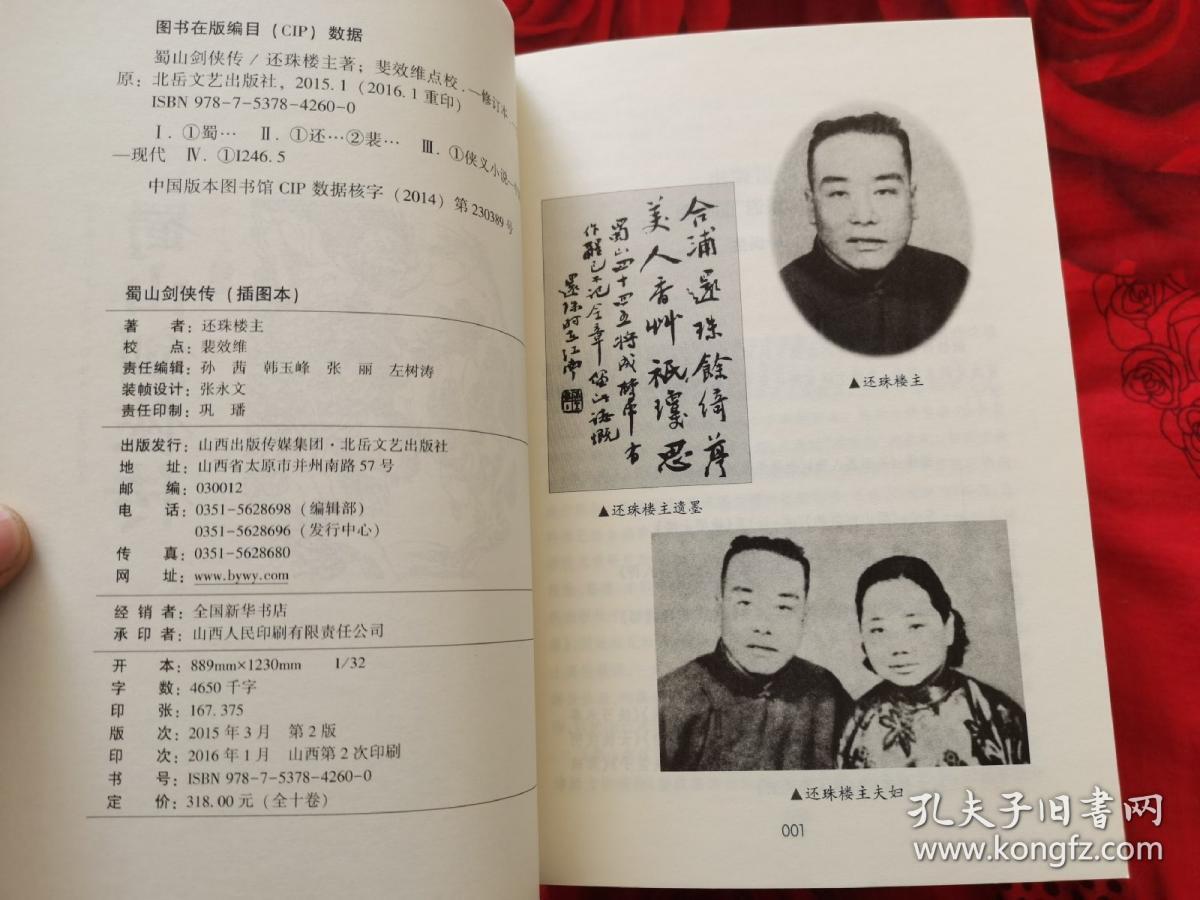 图书在版编目（CIP）数据
蜀山剑侠传 / 还珠楼主著；裴效维点校.—修订本.—
原：北岳文艺出版社，2015.1（2016.1重印）
ISBN 978-7-5378-4260-0
Ⅰ. ①蜀… Ⅱ. ①还…②裴… Ⅲ. ①侠义小说—
—现代 Ⅳ. ①I246.5
中国版本图书馆CIP数据核字（2014）第230389号
蜀山剑侠传（插图本）
著 者：还珠楼主
校 点：裴效维
责任编辑：孙 茜 韩玉峰 张 丽 左树涛
装帧设计：张永文
责任印制：巩 璠
出版发行：山西出版传媒集团·北岳文艺出版社
地 址：山西省太原市并州南路57号
邮 编：030012
电 话：0351-5628698（编辑部）
0351-5628696（发行中心）
传 真：0351-5628680
网 址：www.bywy.com
经 销 者：全国新华书店
承 印 者：山西人民印刷有限责任公司
开 本：889mm×1230mm 1/32
字 数：4650千字
印 张：167.375
版 次：2015年3月 第2版
印 次：2016年1月 山西第2次印刷
书 号：ISBN 978-7-5378-4260-0
定 价：318.00元（全十卷）
合浦還珠餘綺夢
美人香艸祇瓊思
蜀山四十四五将成 有
作醒已不记全章留此誌慨
還珠时在江南
▲还珠楼主
▲还珠楼主遗墨
▲还珠楼主夫妇
001
孔夫子旧书网
www.kongfz.com